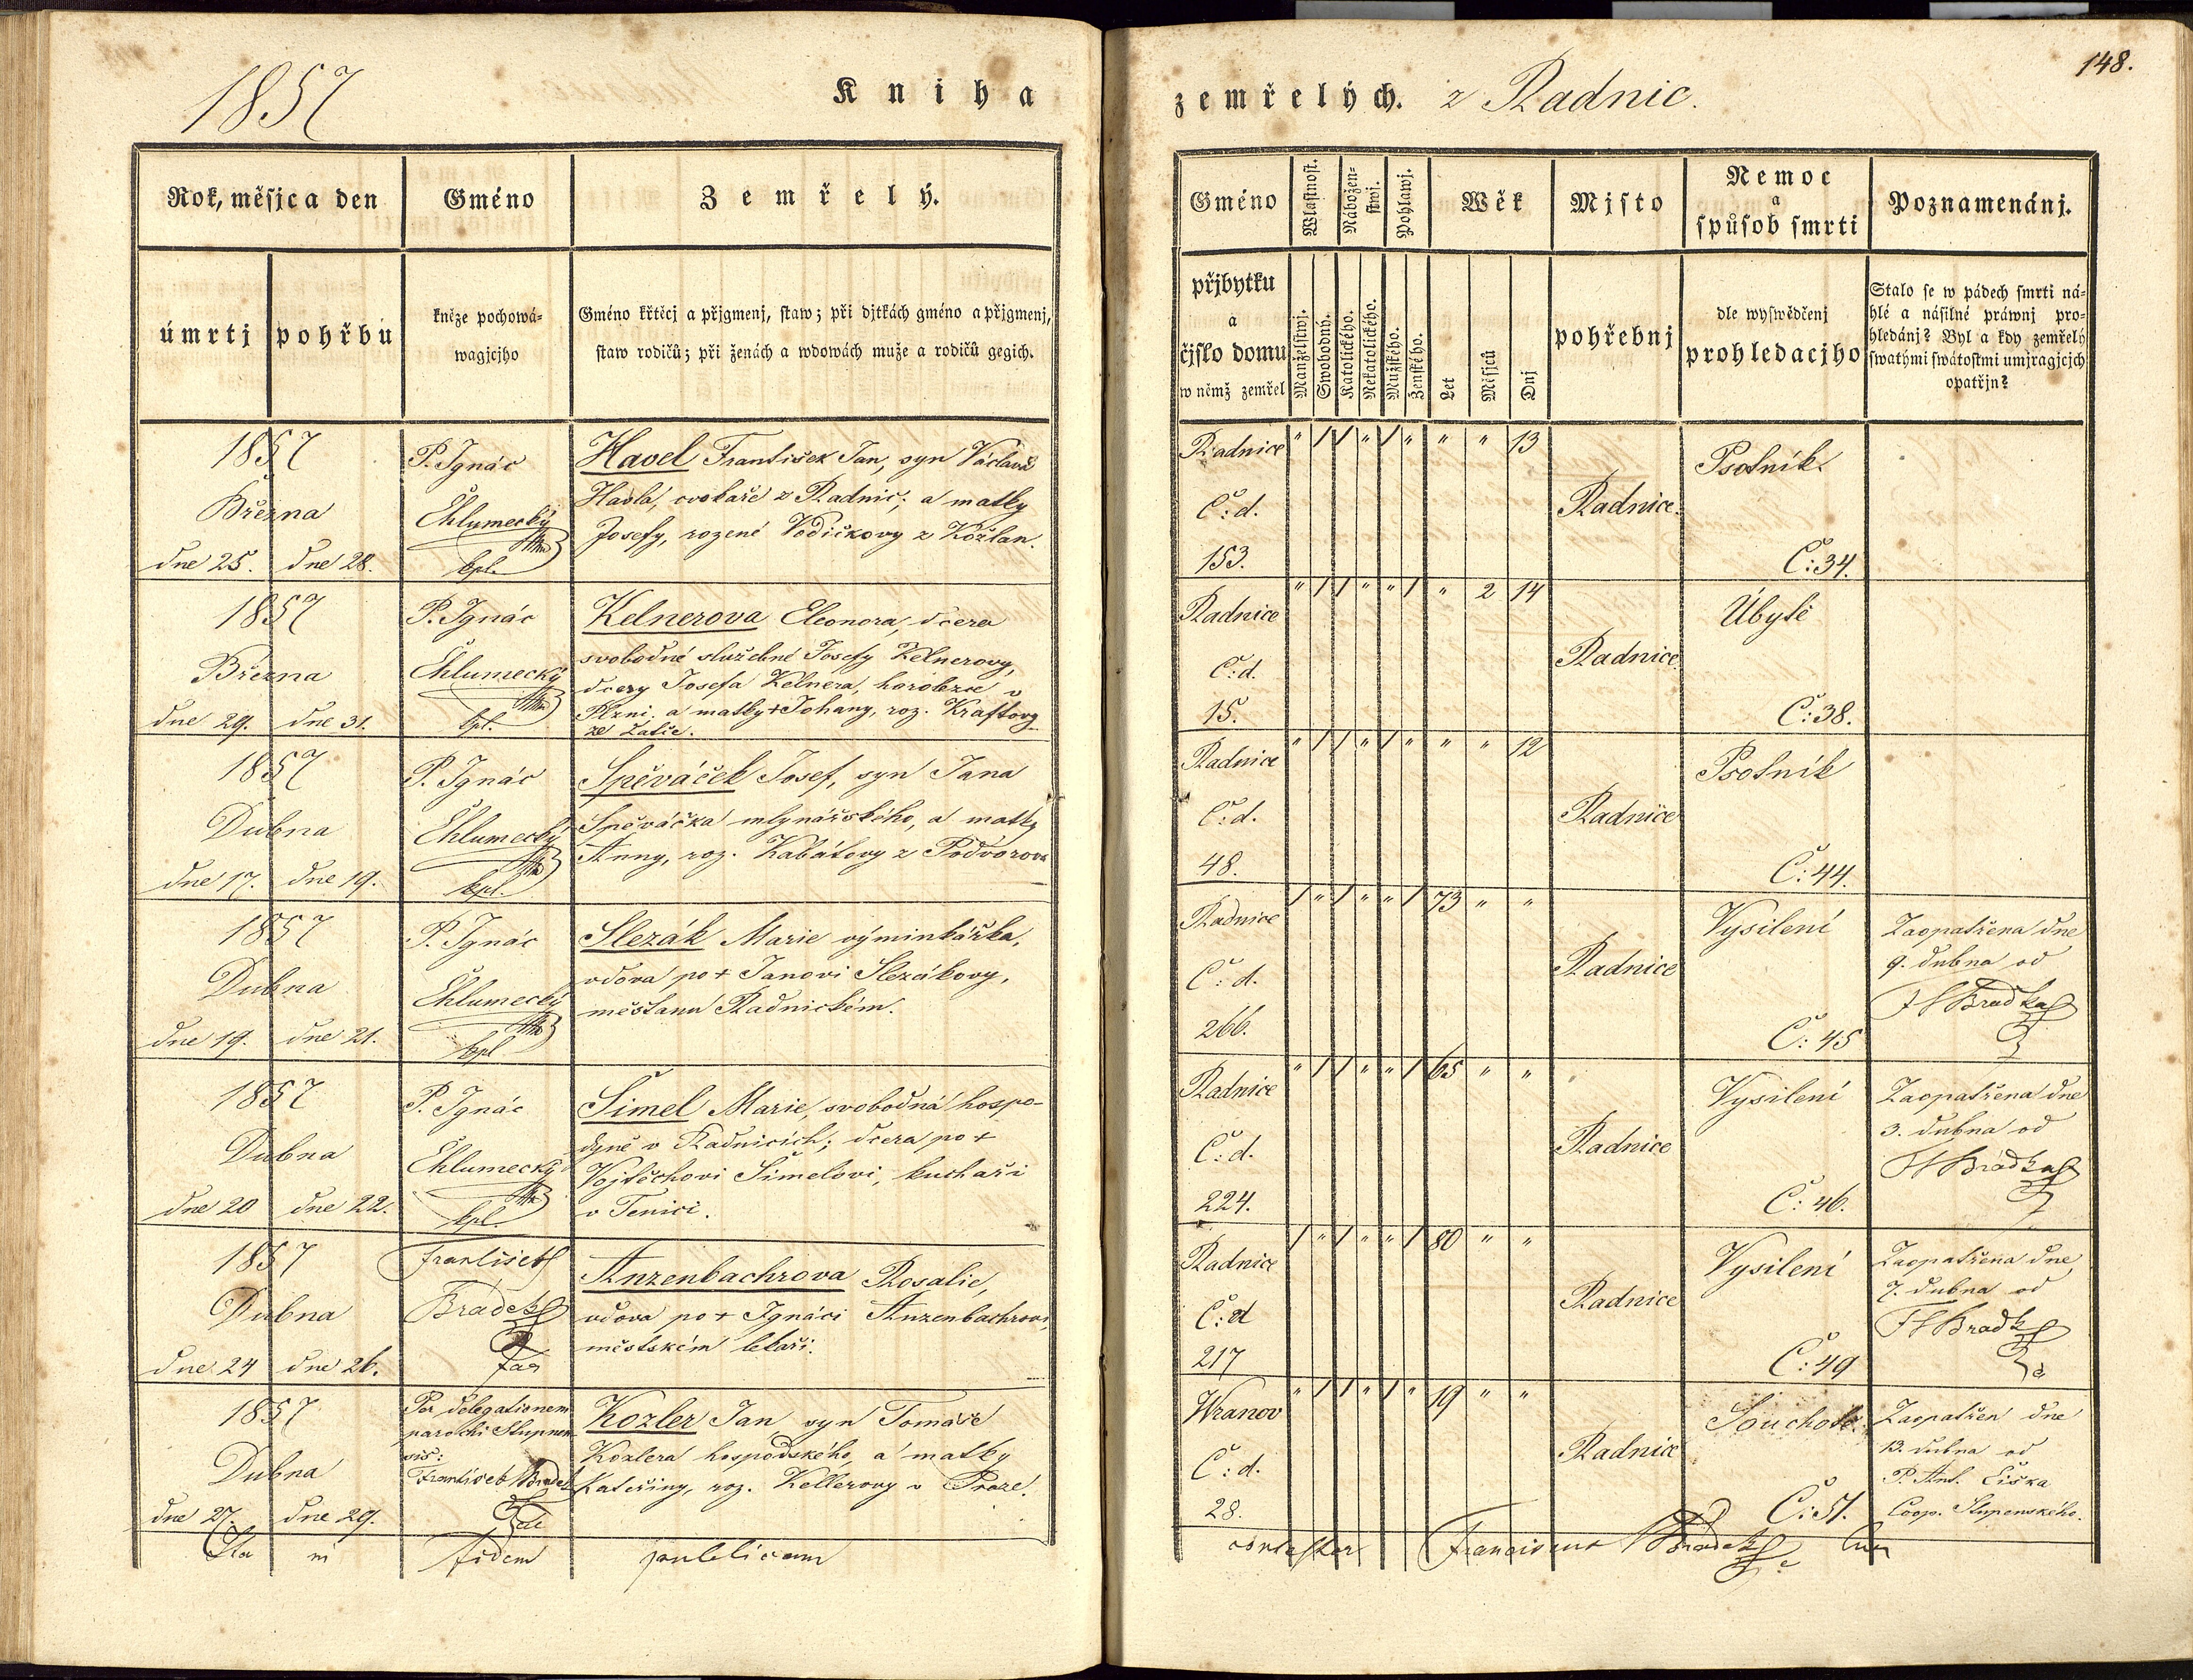 1857
Kniha
zemřelých. z Radnic.
148.
Rok, měsjc a den
Gméno
Zemřelý.
úmrtj
pohřbu
kněze pochowá-
wagjcjho
Gméno křtěcj a přjgmenj, staw; při djtkách gméno a přjgmenj,
staw rodičů; při ženách a wdowách muže a rodičů gegich.
Gméno
Wlastnost.
Nábožen-
stwj.
Pohlawj.
Wěk
Mjsto
Nemoc
a
spůsob smrti
Poznamenánj.
přjbytku
a
čjslo domu
w němž zemřel
Manželstwj.
Swobodný.
Katolického.
Nekatolického.
Mužského.
Ženského.
Let
Měsjců
Dnj
pohřebnj
dle wyswědčenj
prohledacjho
Stalo se w pádech smrti ná-
hlé a násilné práwnj pro-
hledánj? Byl a kdy zemřelý
swatými swátostmi umjragjcjch
opatřjn?
1857
Března
dne 25. dne 28.
P. Ignác
Chlumecký
kpl.
Havel František Jan, syn Václava
Havla, cvokaře z Radnic; a matky
Josefy, rozené Vodičkovy z Kožlan.
Radnice
Č: d.
153.
" / / " / " " " 13
Radnice.
Psotník
Č: 34.
1857
Března
dne 29. dne 31.
P. Ignác
Chlumecký
kpl.
Kelnerova Eleonora, dcera
svobodné služebné Josefy Kelnerovy,
dcery Josefa Kelnera, horolezce v
Plzni, a matky + Johany, roz. Kraftovy
ze Žatic.
Radnice
Č: d.
15.
" / / " " / " 2 14
Radnice
Úbytě
Č: 38.
1857
Dubna
dne 17. dne 19.
P. Ignác
Chlumecký
kpl.
Spěváček Josef, syn Jana
Spěváčka mlynářského, a matky
Anny, roz. Kabátovy z Podvorova
Radnice
Č: d.
48.
" / / " / " " " 12
Radnice
Psotník
Č: 44.
1857
Dubna
dne 19. dne 21.
P. Ignác
Chlumecký
kpl
Slezák Marie výminkářka,
vdova po + Janovi Slezákovy,
měšťanu Radnickém.
Radnice
Č: d.
266.
/ " / " " / 73 " "
Radnice
Vysilení
Č: 45
Zaopatřena dne
9. dubna od
1857
Dubna
dne 20 dne 22.
P. Ignác
Chlumecký
kpl.
Šimel Marie, svobodná hospo-
dyně v Radnicích; dcera po +
Vojtěchovi Šimelovi, kuchaři
v Tenici.
Radnice
Č: d.
224.
" / / " " / 65 " "
Radnice
Vysilení
Č: 46.
Zaopatřena dne
3. dubna od
1857
Dubna
dne 24 dne 26.
František
Bradek
Anzenbachrova Rosalie,
vdova po + Ignáci Anzenbachrovi,
městském lékaři.
Radnice
Č: d
217
/ " / " " / 80 " "
Radnice
Vysilení
Č: 49
Zaopatřena dne
7. dubna od
1857
Dubna
dne 27. dne 29.
Per delegationem
parochi Stupnen
sis:
František Bradek
Kozler Jan syn Tomáše
Kozlera hospodského, a matky
Kateřiny, roz. Kellerovy v Praze.
Wranov
Č: d.
28.
" / / " / " 19 " "
Radnice
Souchotě.
Č: 51.
Zaopatřen dne
13. dubna od
P. Ant. Čiška
Coop. Stupenského.
Ita in fidem publicam
contestor Franciscus Bradek